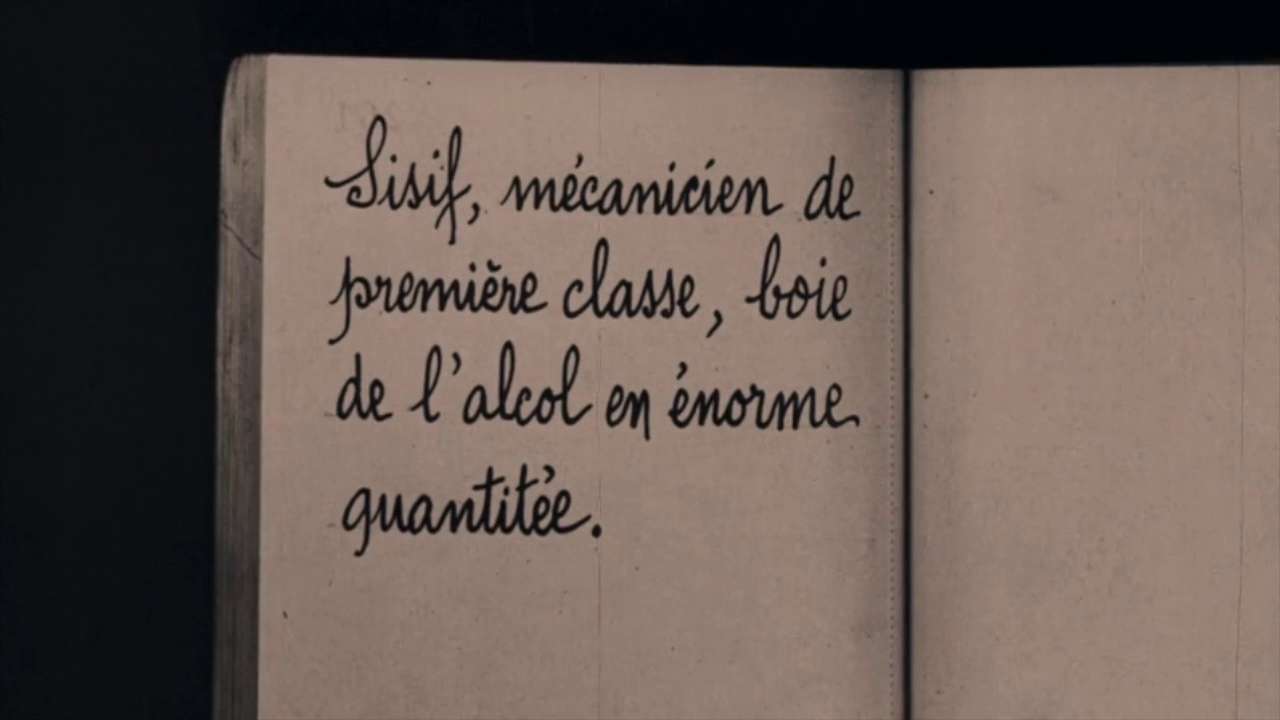 Sisif, mécanicien de
première classe, boie
de l'alcol en énorme
quantitée.